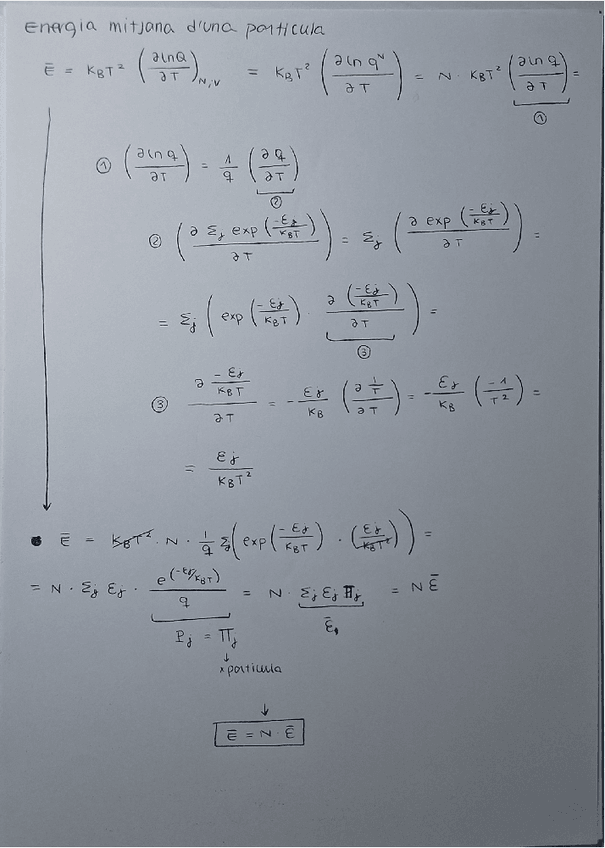 Energia mitjana d'una partícula
Ē = K_BT² (∂lnQ/∂T)_N,V = K_BT² (∂ln q^N/∂T) = N · K_BT² (∂ln q/∂T) =
①
① (∂ln q/∂T) = 1/q (∂q/∂T)
②
② (∂ Σ_j exp(-ε_j/K_BT)/∂T) = Σ_j (∂ exp(-ε_j/K_BT)/∂T) =
= Σ_j (exp(-ε_j/K_BT) · ∂(-ε_j/K_BT)/∂T) =
③
③ ∂ -ε_j/K_BT / ∂T = -ε_j/K_B (∂ 1/T / ∂T) = -ε_j/K_B (-1/T²) =
= ε_j/K_BT²
• Ē = K_BT² · N · 1/q Σ_j (exp(-ε_j/K_BT) · (ε_j/K_BT²)) =
= N · Σ_j ε_j · e^(-ε_j/K_BT)/q = N · Σ_j ε_j Π_j = N ε̄
P_j = Π_j ε̄
↓
x partícula
↓
Ē = N · ε̄